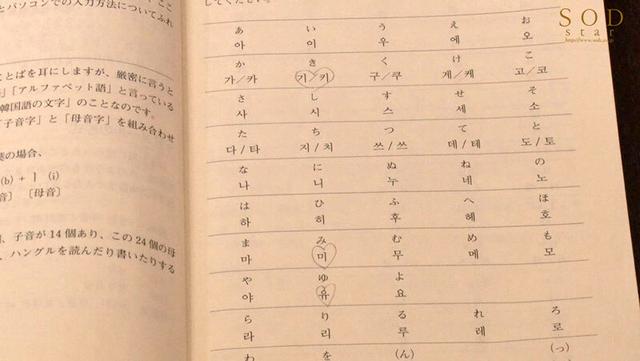 とパソコンでの入力方法についてふれ
ことばを耳にしますが、厳密に言うと
」「アルファベット語」と言っている
韓国語の文字」のことなのです。
「子音字」と「母音字」を組み合わせ
の場合、
(b) + ㅣ (i)
音〕 〔母音〕
、子音が14個あり、この24個の母
、ハングルを読んだり書いたりする
してください。
あ い う え お
아 이 우 에 오
か き く け こ
가/카 기/키 구/쿠 게/케 고/코
さ し す せ そ
사 시 스 세 소
た ち つ て と
다/타 지/치 쓰/쓰 데/테 도/토
な に ぬ ね の
나 니 누 네 노
は ひ ふ へ ほ
하 히 후 헤 호
ま み む め も
마 미 무 메 모
や ゆ よ
야 유 요
ら り る れ ろ
라 리 루 레 로
わ を (ん) (っ)
SOD
star